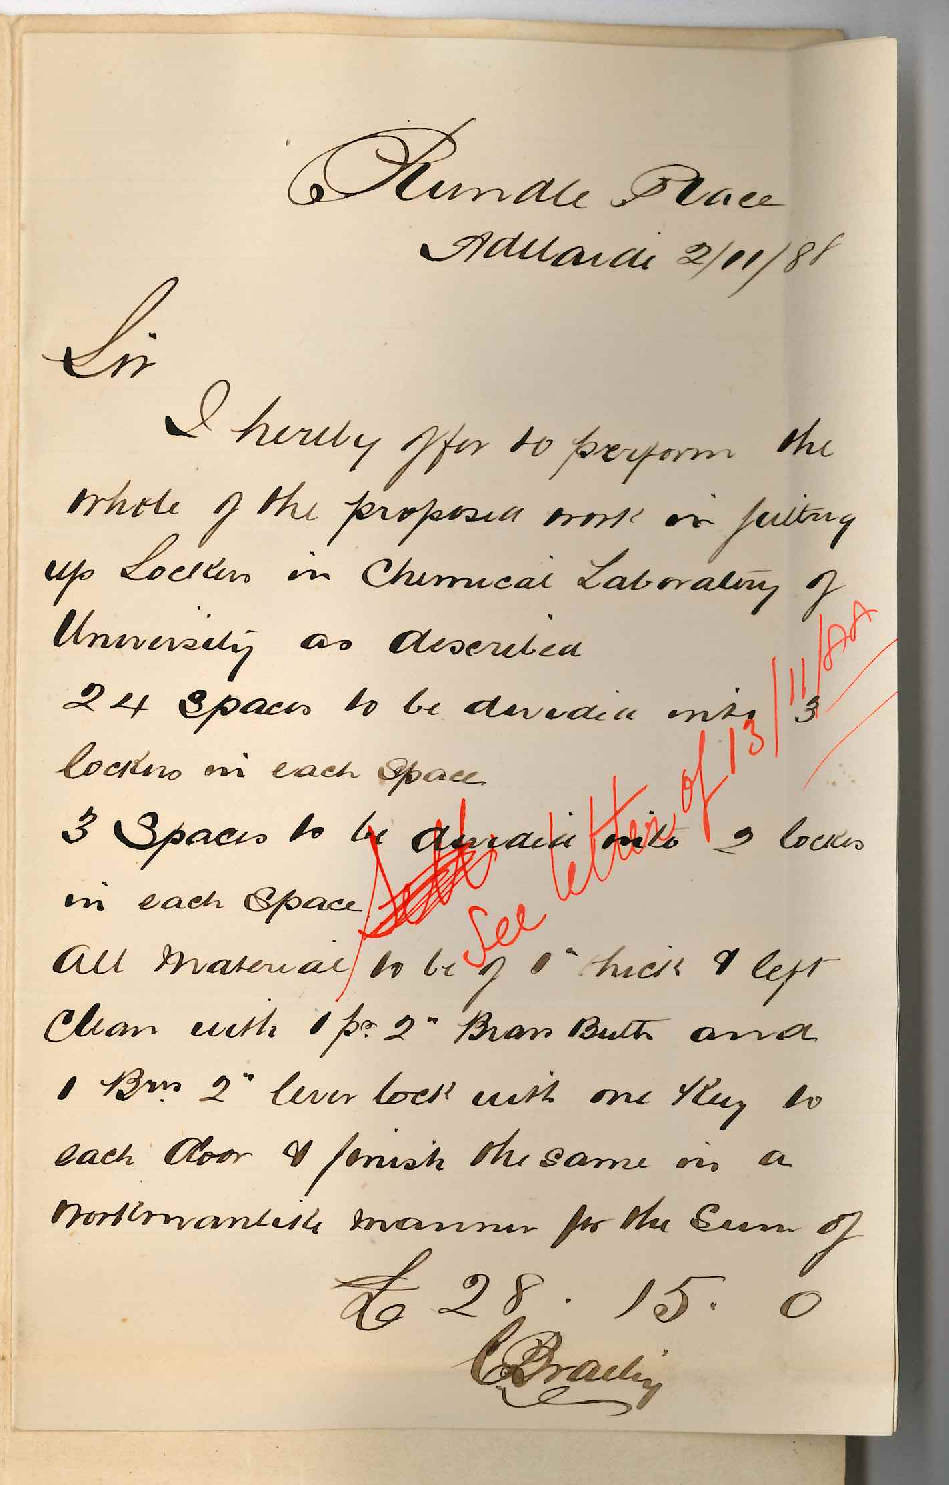 Rundle Place
Adelaide 2/11/88
Sir
I hereby offer to perform the
whole of the proposed work in fitting
up Lockers in Chemical Laboratory of
University as described
24 Spaces to be devided into 3
lockers in each space
3 Spaces to be devided into 2 lockers
in each space
All Material to be of 1" thick & left
Clean with 1 pr. 2" Brass Butts and
1 Brss 2" lever lock with one Key to
each door & finish the same in a
workmanlike manner for the Sum of
£ 28. 15. 0
See letter of 13/11/88